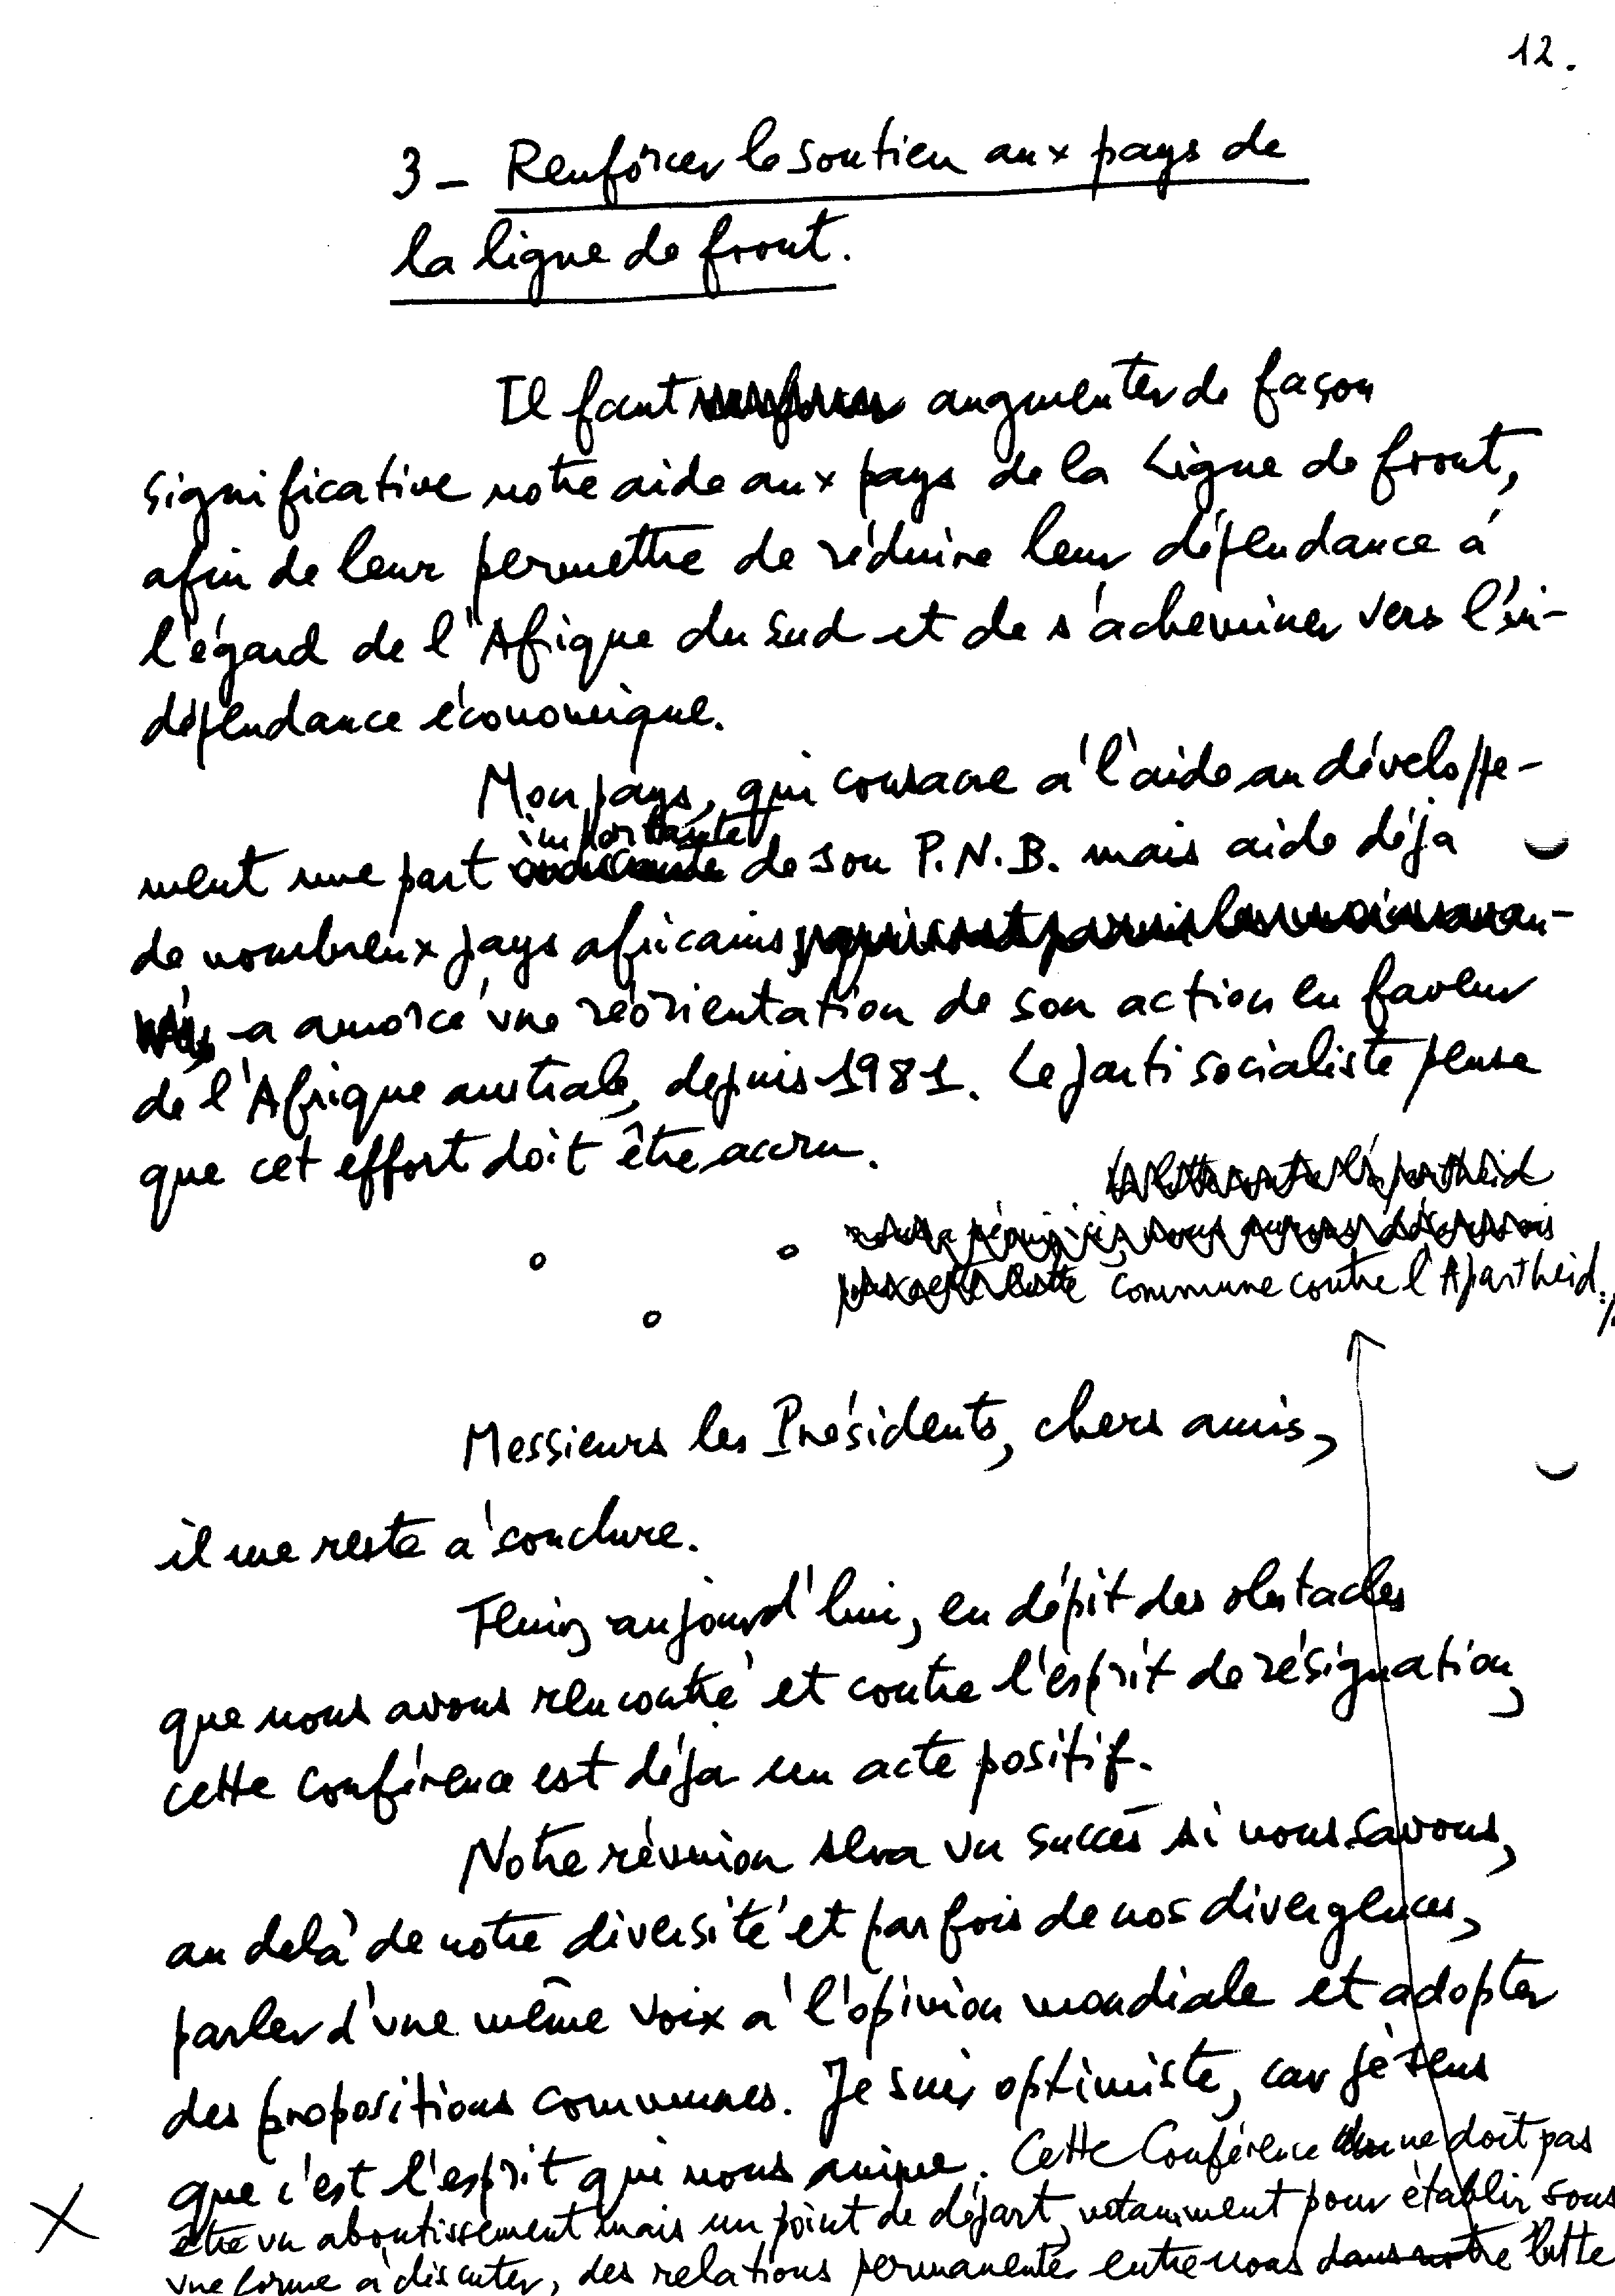 12.
3 - Renforcer le soutien aux pays de
la ligne de front.
Il faut augmenter de façon
significative notre aide aux pays de la Ligne de front,
afin de leur permettre de réduire leur dépendance à
l'égard de l'Afrique du Sud et de s'acheminer vers l'in-
dépendance économique.
Mon pays, qui consacre à l'aide au développe-
importante
ment une part de son P.N.B. mais aide déjà
de nombreux pays africains,
a amorcé une réorientation de son action en faveur
de l'Afrique australe, depuis 1981. Le parti socialiste pense
que cet effort doit être accru.
la lutte contre l'apartheid
commune contre l'Apartheid.
Messieurs les Présidents, chers amis,
il me reste à conclure.
Tenir, aujourd'hui, en dépit des obstacles
que nous avons rencontré et contre l'esprit de résignation,
cette conférence est déjà un acte positif.
Notre réunion sera un succès si nous savons,
au delà de notre diversité et parfois de nos divergences,
parler d'une même voix à l'opinion mondiale et adopter
des propositions communes. Je suis optimiste, car je sens
que c'est l'esprit qui nous anime. Cette Conférence ne doit pas
être un aboutissement mais un point de départ, notamment pour établir sous
une forme à discuter, des relations permanentes entre nous dans notre lutte